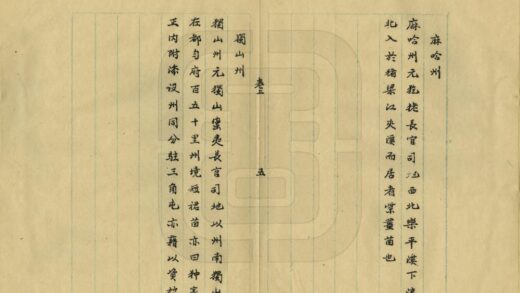 麻哈州
麻哈州元犵狫長官司地西北樂平溪下流
北入於豬梁江夾溪而居者紫薑苗也
卷三 五
獨山州
獨山州元獨山蠻夷長官司地以州南獨山
在都勻府百五十里州境短裙苗亦曰种
正内附添設州同分駐三角屯亦藉以資